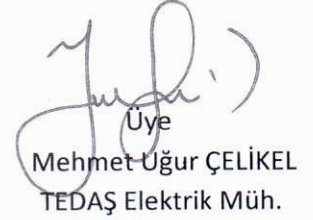 Üye
Mehmet Uğur ÇELİKEL
TEDAŞ Elektrik Müh.